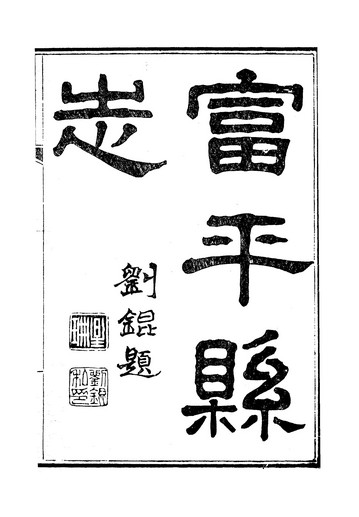 富平縣
志
劉錕題
劉錕私印